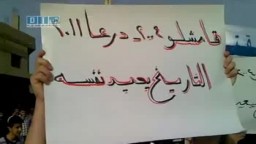 قامشلو ٢٠٠٤ درعا ٢٠١١
التاريخ يعيد نفسه